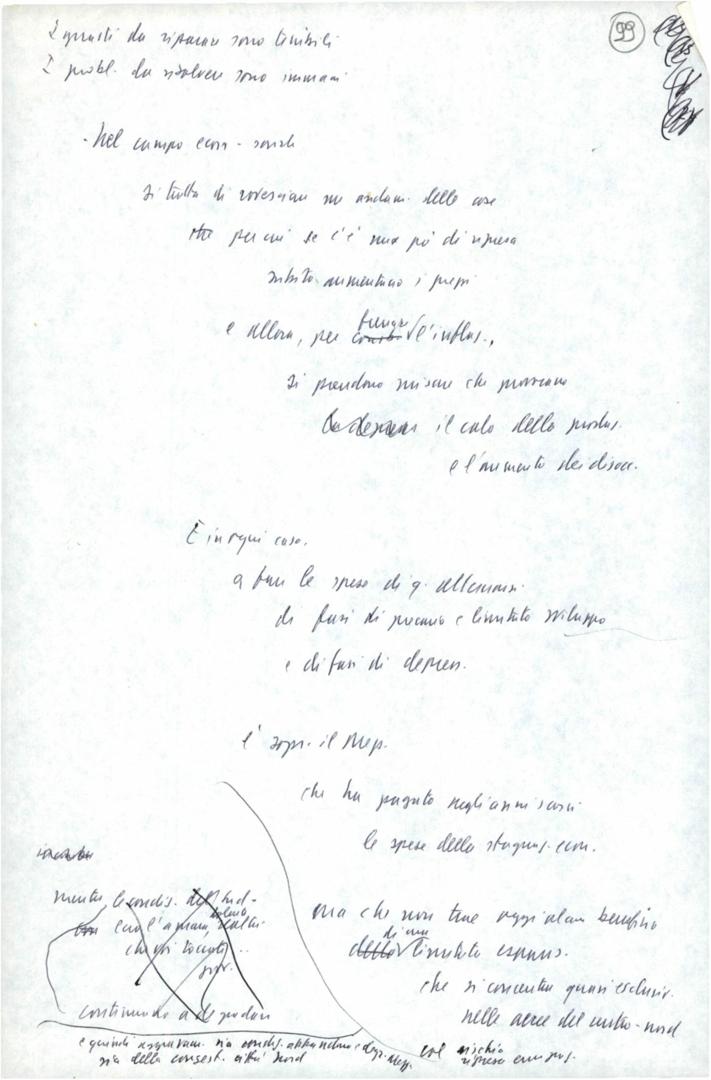 99
I guasti da riparare sono terribili
I probl. da risolvere sono immani
- Nel campo econ. - sociale
si tratta di rovesciare un andam. delle cose
per cui se c'è un pò di ripresa
subito aumentano i prezzi
e allora, per frenare l'inflaz.,
si prendono misure che provocano
il calo della produz.
e l'aumento dei disocc.
E in ogni caso,
a fare le spese di q. alternarsi
di fasi di precario e limitato sviluppo
e di fasi di depress.
è sopr. il Mezz.
che ha pagato negli anni scorsi
le spese della stagnaz. econ.
ma che non trae oggi alcun beneficio
di una limitata espans.
che si concentra quasi esclusiv.
nelle aree del centro-nord
mentre le condiz. dell'
che già toccati...
continuano a degradarsi
e quindi aggravam. sia condiz. abbandono e degr. Mezz.
sia della congest. città nord
col rischio
ripresa